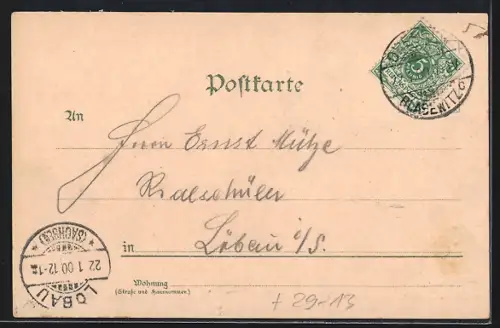 Postkarte
An
Herrn Ernst Mütze
Realschüler
in Löbau i/S.
Wohnung
(Straße und Hausnummer)
BLASEWITZ
5
LÖBAU
22 1 00 12-1
(SACHSEN)
+ 29-13